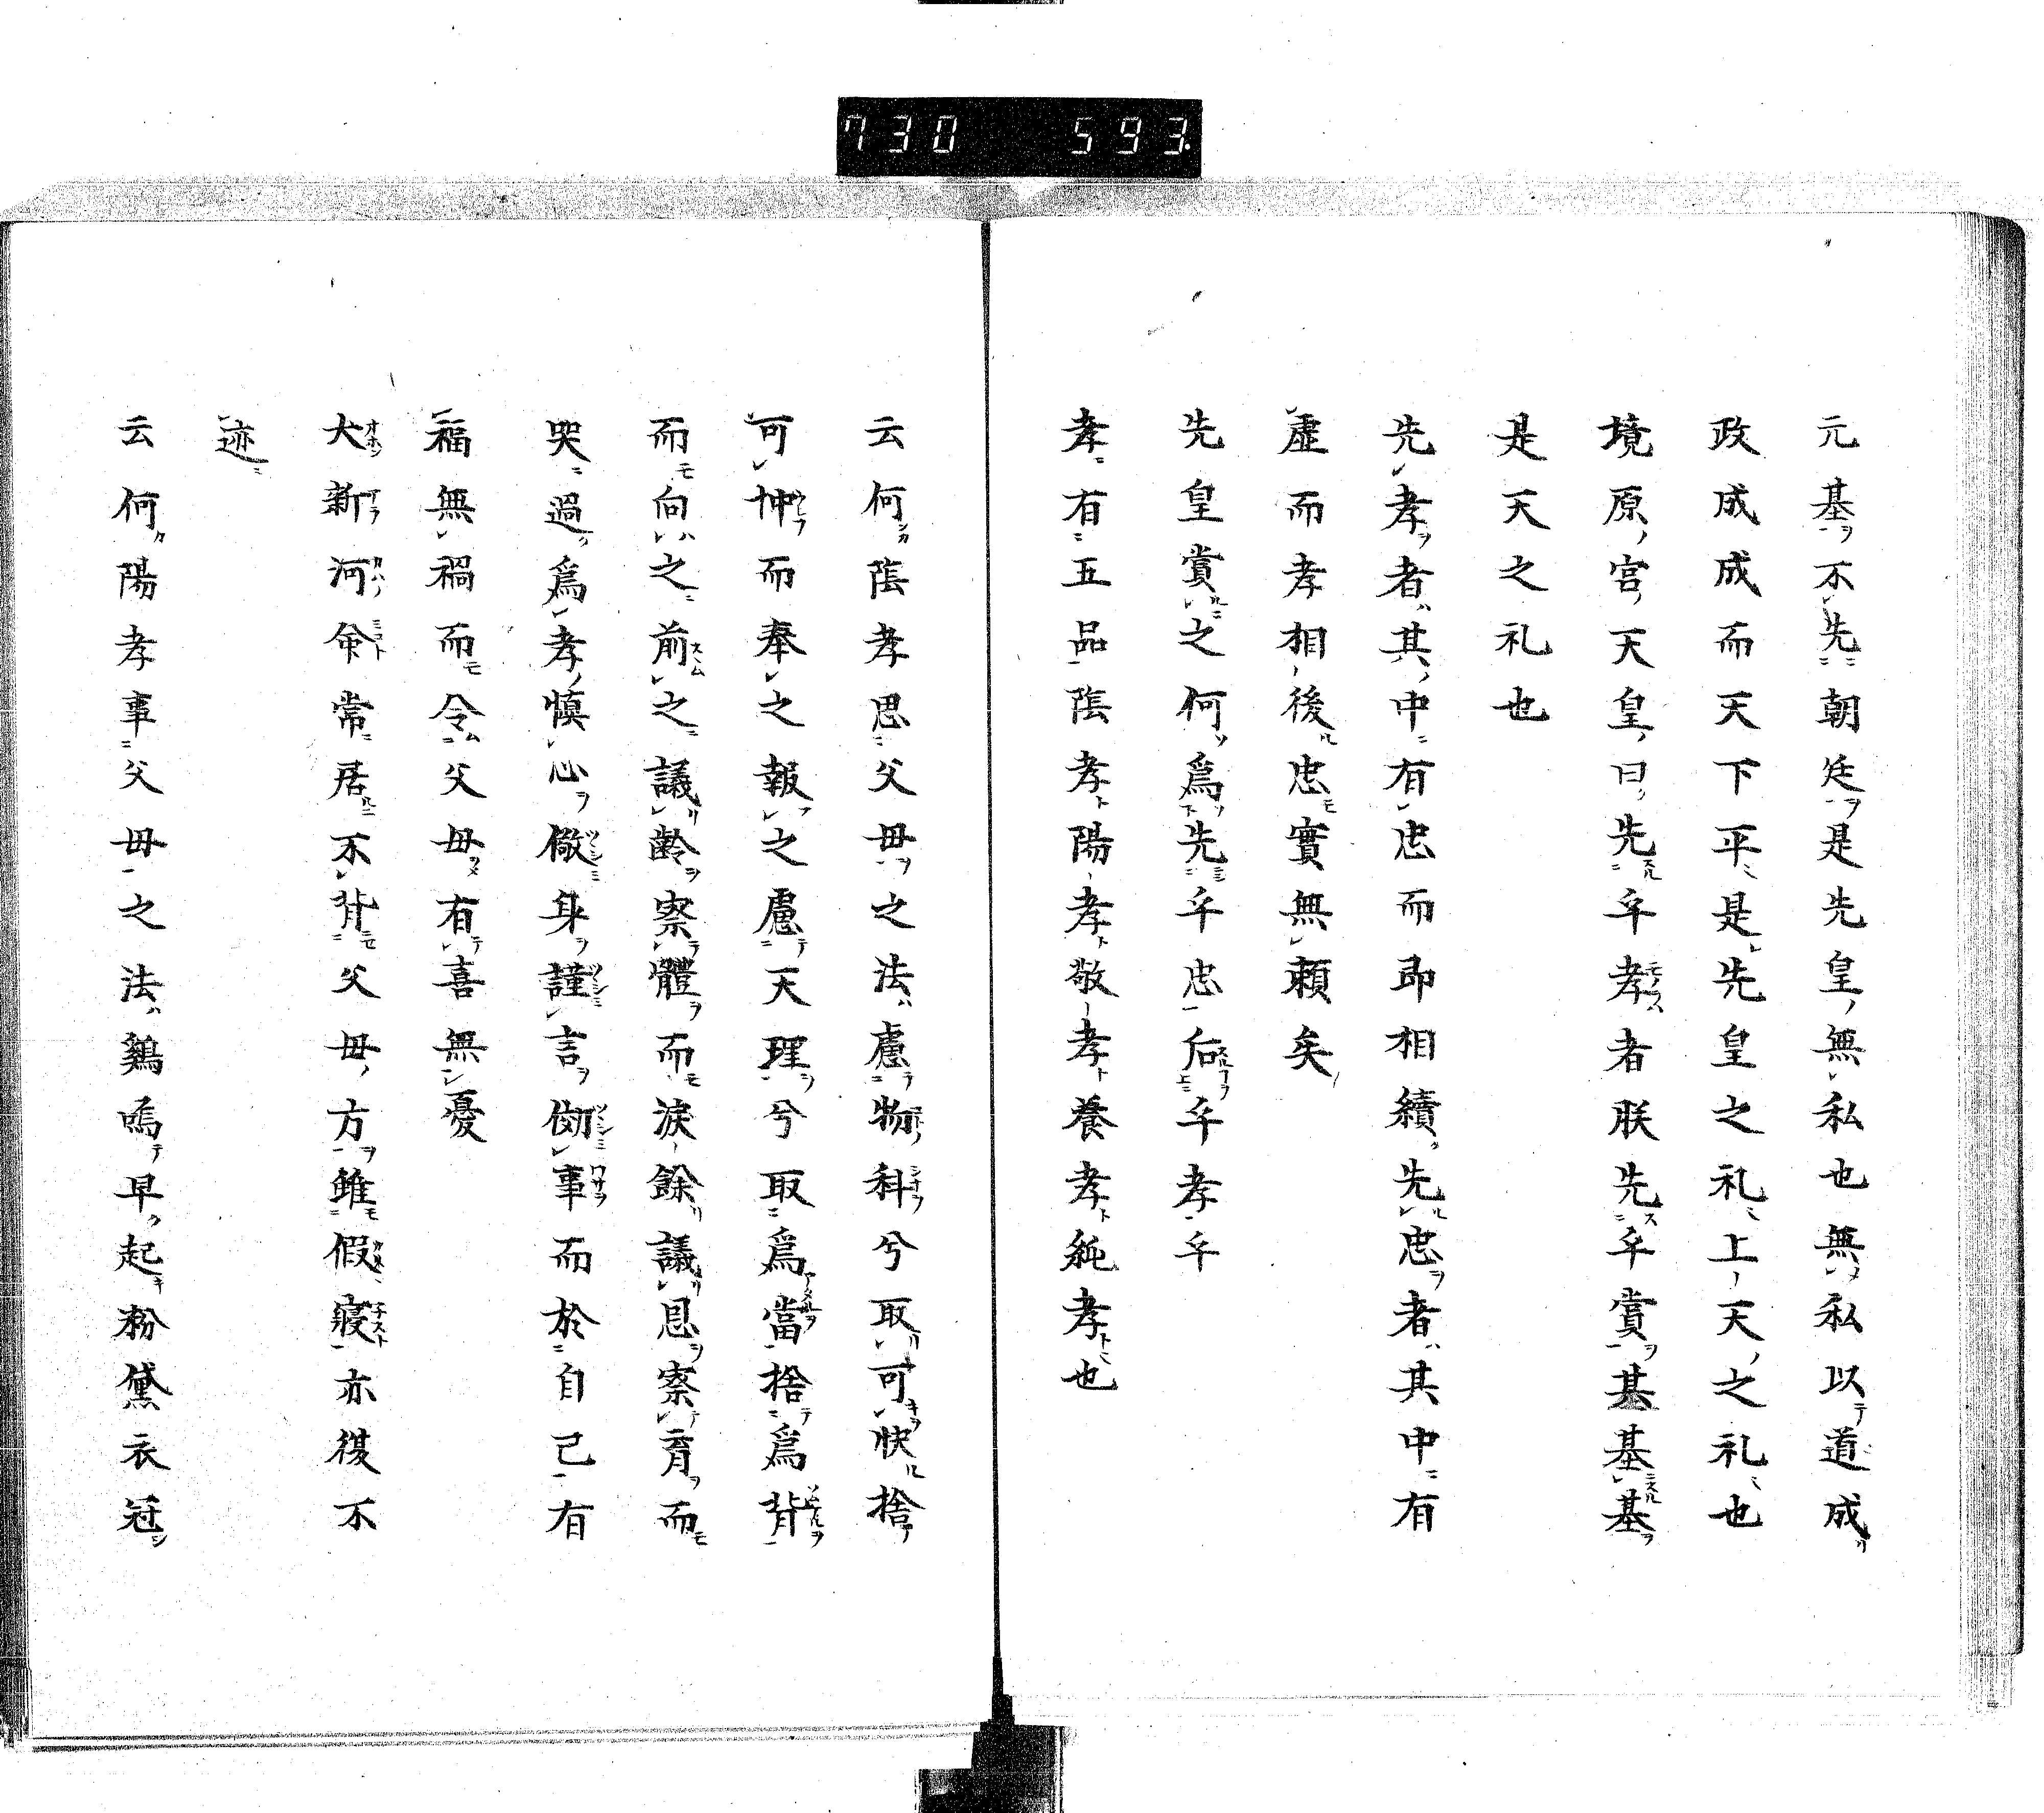 730 593.
元基不先朝廷是先皇無私也無私以道成
政成成而天下平是先皇之礼上天之礼也
境原宮天皇曰先乎孝者朕先乎賞基基基
是天之礼也
先孝者其中有忠而即相續先忠者其中有
虛而孝相後忠實無賴矣
先皇賞之何爲先乎忠后乎孝乎
孝有五品陰孝陽孝敬孝養孝純孝也
云何陰孝思父母之法慮物科兮取可快捨
可忡而奉之報之慮天理兮取爲當捨爲背
而向之前之議齡察體而淚餘議恩察育而
哭過爲孝慎心儆身謹言㑃事而於自己有
福無禍而令父母有喜無憂
大新河命常居不背父母方雖假寢亦復不
迹
云何陽孝事父母之法鷄鳴早起粉黛衣冠